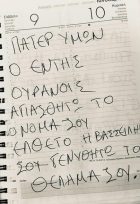 9
10
ΠΑΤΕΡ ΥΜΩΝ
Ο ΕΝΤΗΣ
ΟΥΡΑΝΟΙΣ
ΑΓΙΑΣΘΗΤΩ ΤΟ
ΟΝΟΜΑ ΣΟΥ
ΕΛΘΕΤΩ Η ΒΑΣΣΕΙΛΕΙ
ΣΟΥ ΓΕΝΥΘΗΤΩ ΤΟ
ΘΕΛΑΜΑ ΣΟΥ.